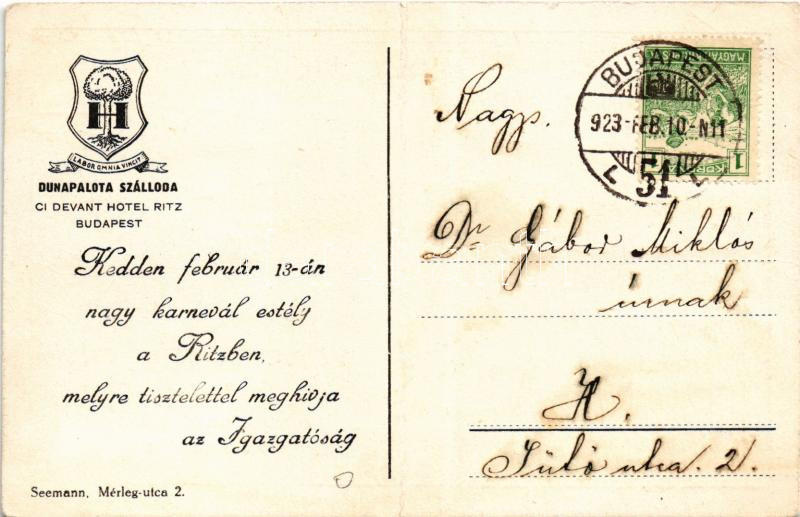 H
LABOR OMNIA VINCIT
DUNAPALOTA SZÁLLODA
CI DEVANT HOTEL RITZ
BUDAPEST
Kedden február 13-án
nagy karnevál estély
a Ritzben,
melyre tisztelettel meghivja
az Igazgatóság
Seemann, Mérleg-utca 2.
BUDAPEST
923-FEB.10-N11
51
1
Nagys.
Dr Gábor Miklós
úrnak
H.
utca. 2.